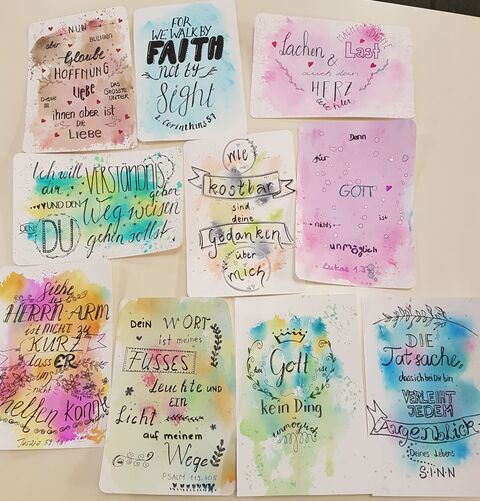 NUN
aber BLEIBEN
Glaube
HOFFNUNG
LIEBE
DIESE III
DAS GRÖSSTE UNTER
ihnen aber ist
DIE
LIEBE
FOR
WE WALK BY
FAITH
not by
Sight
2. Corinthians 5:7
Lachen &
MACHT
Last
auch dein
HERZ
leichter
Ich will
dir VERSTÄNDNIS
geben
UND DEN Weg weisen
DEN DU gehen sollst
WIE
kostbar
sind
deine
Gedanken
über
mich
Denn
für
GOTT
ist
nichts
unmöglich
Lukas 1.37
Siehe
des
HERRN ARM
ist NICHT zu
KURZ
dass ER
uns
nicht
helfen könnte
Jesaja 59,1
DEIN WORT
ist meines
FUSSES
Leuchte UND
EIN
Licht
auf meinem
Wege
PSALM 119,105
bei Gott ist
kein Ding
unmöglich
DIE
Tatsache,
dass ich bei Dir bin
VERLEIHT
JEDEM
Augenblick
Deines Lebens
SINN